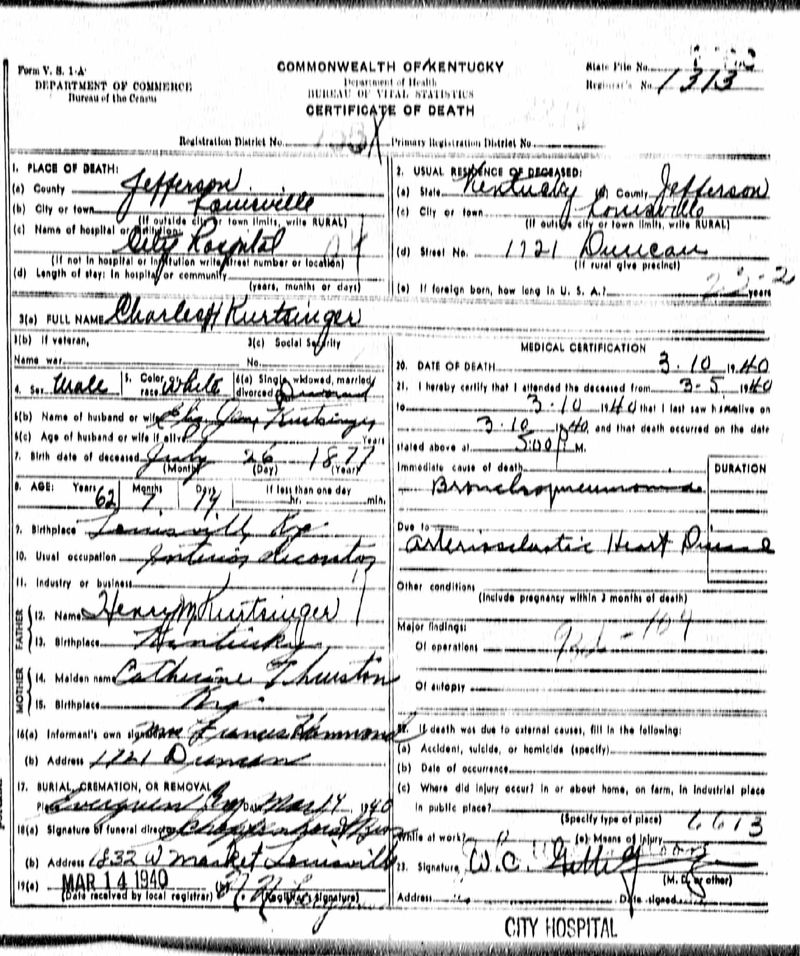 Form V. S. 1-A
DEPARTMENT OF COMMERCE
Bureau of the Census
COMMONWEALTH OF KENTUCKY
Department of Health
BUREAU OF VITAL STATISTICS
CERTIFICATE OF DEATH
State File No.
Registrar's No. 1313
Registration District No. Primary Registration District No.
1. PLACE OF DEATH:
(a) County Jefferson
(b) City or town Louisville
(If outside city or town limits, write RURAL)
(c) Name of hospital or institution:
City Hospital
(If not in hospital or institution write street number or location)
(d) Length of stay: In hospital or community
(years, months or days)
2. USUAL RESIDENCE OF DECEASED:
(a) State Kentucky (b) County Jefferson
(c) City or town Louisville
(If outside city or town limits, write RURAL)
(d) Street No. 1721 Duncan
(If rural give precinct)
(e) If foreign born, how long in U. S. A.? years
3(a) FULL NAME Charles H Kurtsinger
3(b) If veteran, 3(c) Social Security
Name war No.
4. Sex Male 5. Color or race White 6(a) Single, widowed, married, divorced Divorced
6(b) Name of husband or wife Kurtsinger
6(c) Age of husband or wife if alive Years
7. Birth date of deceased July 26 1877
(Month) (Day) (Year)
8. AGE: Years 62 Months 7 Days 14 If less than one day hr. min.
9. Birthplace Louisville, Ky
10. Usual occupation Interior Decorator
11. Industry or business
FATHER
12. Name Henry M Kurtsinger
13. Birthplace Kentucky
MOTHER
14. Maiden name Catherine Thurston
15. Birthplace Ky.
16(a) Informant's own signature Mrs Francis Hammond
(b) Address 1721 Duncan
17. BURIAL, CREMATION, OR REMOVAL
Place Evergreen Cem Date Mar 14 1940
18(a) Signature of funeral director
(b) Address 1832 W Market Louisville
19(a) MAR 14 1940 (b)
(Date received by local registrar) (Registrar's signature)
MEDICAL CERTIFICATION
20. DATE OF DEATH 3-10 1940
21. I hereby certify that I attended the deceased from 3-5 1940
to 3-10 1940 that I last saw him alive on
3-10 1940, and that death occurred on the date
stated above at 5:00 P M.
Immediate cause of death DURATION
Bronchopneumonia
Due to
Arteriosclerotic Heart Disease
Other conditions
(Include pregnancy within 3 months of death)
Major findings:
Of operations
Of autopsy
22. If death was due to external causes, fill in the following:
(a) Accident, suicide, or homicide (specify)
(b) Date of occurrence
(c) Where did injury occur? In or about home, on farm, in industrial place
in public place?
(Specify type of place) 6613
While at work? (e) Means of injury
23. Signature W. C.
(M. D. or other)
Address Date signed
CITY HOSPITAL